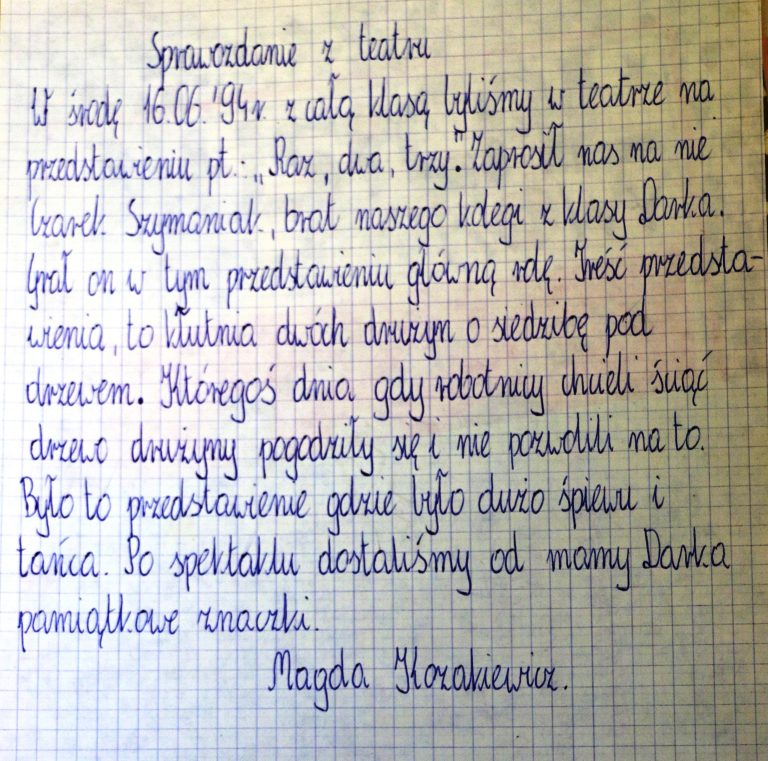 Sprawozdanie z teatru
W środę 16.06.'94r. z całą klasą byliśmy w teatrze na
przedstawieniu pt.: „Raz, dwa, trzy." Zaprosił nas na nie
Czarek Szymaniak, brat naszego kolegi z klasy Darka.
Grał on w tym przedstawieniu główną rolę. Treść przedsta-
wienia, to kłutnia dwóch drużyn o siedzibę pod
drzewem. Któregoś dnia gdy robotnicy chcieli ściąć
drzewo drużyny pogodziły się i nie pozwolili na to.
Było to przedstawienie gdzie było dużo śpiewu i
tańca. Po spektaklu dostaliśmy od mamy Darka
pamiątkowe znaczki.
Magda Kozakiewicz.